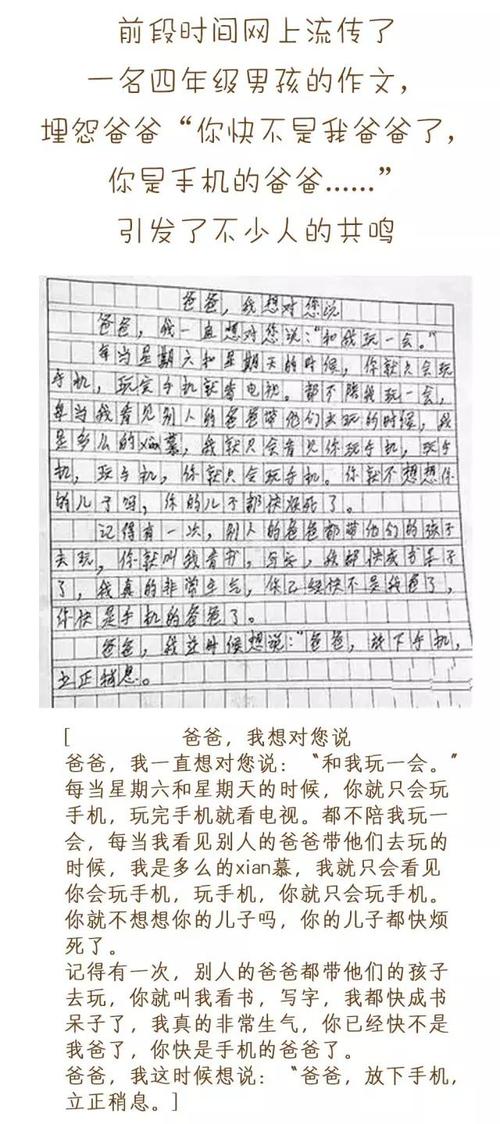 前段时间网上流传了
一名四年级男孩的作文，
埋怨爸爸“你快不是我爸爸了，
你是手机的爸爸......”
引发了不少人的共鸣
爸爸，我想对您说
爸爸，我一直想对您说：“和我玩一会。”
每当星期六和星期天的时候，你就只会玩
手机，玩完手机就看电视。都不陪我玩一会，
每当我看见别人的爸爸带他们去玩的时候，我
是多么的xian慕，我就只会看见你玩手机，玩手
机，玩手机，你就只会玩手机。你就不想想你
的儿子吗，你的儿子都快烦死了。
记得有一次，别人的爸爸都带他们的孩子
去玩，你就叫我看书，写字，我都快成书呆子
了，我真的非常生气，你已经快不是我爸了，
你快是手机的爸爸了。
爸爸，我这时候想说：“爸爸，放下手机，
立正稍息。
[ 爸爸，我想对您说
爸爸，我一直想对您说：“和我玩一会。”
每当星期六和星期天的时候，你就只会玩
手机，玩完手机就看电视。都不陪我玩一
会，每当我看见别人的爸爸带他们去玩的
时候，我是多么的xian慕，我就只会看见
你会玩手机，玩手机，你就只会玩手机。
你就不想想你的儿子吗，你的儿子都快烦
死了。
记得有一次，别人的爸爸都带他们的孩子
去玩，你就叫我看书，写字，我都快成书
呆子了，我真的非常生气，你已经快不是
我爸了，你快是手机的爸爸了。
爸爸，我这时候想说：“爸爸，放下手机，
立正稍息。]